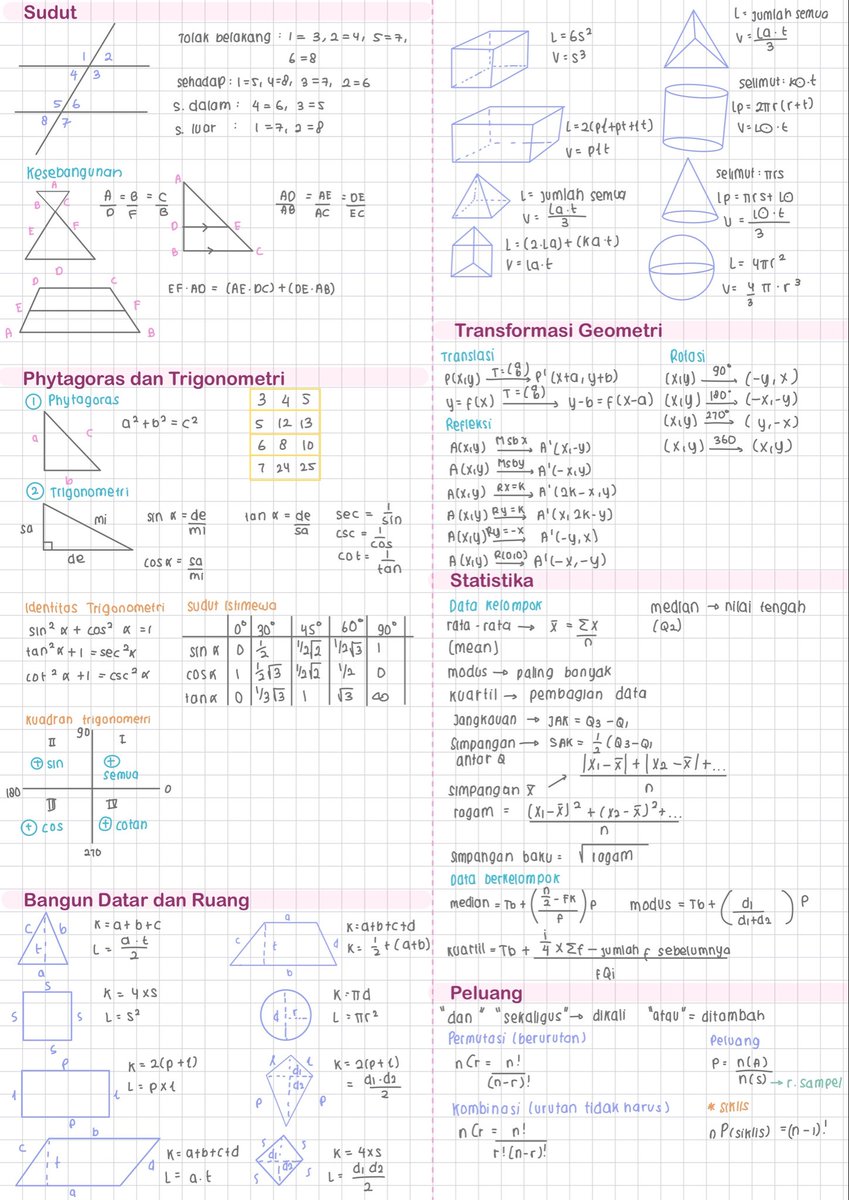 Sudut
Tolak belakang : 1 = 3, 2 = 4, 5 = 7,
6 = 8
sehadap : 1 = 5, 4 = 8, 3 = 7, 2 = 6
s. dalam : 4 = 6, 3 = 5
s. luar : 1 = 7, 2 = 8
1 2
4 3
5 6
8 7
Kesebangunan
A
B C
E F
D
A/D = B/F = C/B
A
D E
B C
AD/AB = AE/AC = DE/EC
D C
E F
A B
EF . AD = (AE . DC) + (DE . AB)
Phytagoras dan Trigonometri
1 Phytagoras
a c
b
a² + b² = c²
3 4 5
5 12 13
6 8 10
7 24 25
2 Trigonometri
sa mi
de
sin α = de/mi
tan α = de/sa
cos α = sa/mi
sec = 1/sin
csc = 1/cos
cot = 1/tan
Identitas Trigonometri
sin² α + cos² α = 1
tan² α + 1 = sec² α
cot² α + 1 = csc² α
Sudut Istimewa
0° 30° 45° 60° 90°
sin α 0 1/2 1/2√2 1/2√3 1
cos α 1 1/2√3 1/2√2 1/2 0
tan α 0 1/3√3 1 √3 ∞
Kuadran trigonometri
90
II I
+ sin + semua
180 0
III IV
+ cos + cotan
270
Bangun Datar dan Ruang
c b
t
a
K = a + b + c
L = a . t/2
a
c t d
b
K = a+b+c+d
K = 1/2 t (a+b)
s
s s
s
K = 4 x s
L = s²
d r
K = πd
L = πr²
p
l l
p
K = 2(p + l)
L = p x l
l l
d1
d2
p p
K = 2(p + l)
= d1 . d2/2
b
c t d
a
K = a+b+c+d
L = a . t
s s
d1
d2
s s
K = 4 x s
L = d1 d2/2
L = 6s²
V = s³
L = 2(pl + pt + lt)
V = plt
L = jumlah semua
V = La . t/3
L = (2 . La) + (Ka . t)
V = La . t
L = jumlah semua
V = La . t/3
selimut : K⊙ . t
Lp = 2πr(r+t)
V = L⊙ . t
selimut : πrs
Lp = πrs + L⊙
V = L⊙ . t/3
L = 4πr²
V = 4/3 π . r³
Transformasi Geometri
Translasi
P(x,y) T = (a b) → P'(x+a, y+b)
y = f(x) T = (a b) → y-b = f(x-a)
Refleksi
A(x,y) Msbx → A'(x,-y)
A(x,y) Msby → A'(-x,y)
A(x,y) Rx=K → A'(2K-x,y)
A(x,y) Ry=K → A'(x, 2K-y)
A(x,y) Ry=-x → A'(-y,x)
A(x,y) R(0,0) → A'(-x,-y)
Rotasi
(x,y) 90° → (-y, x)
(x,y) 180° → (-x,-y)
(x,y) 270° → (y,-x)
(x,y) 360 → (x,y)
Statistika
Data Kelompok
rata-rata → x̄ = Σx/n
(mean)
modus → paling banyak
Kuartil → pembagian data
Jangkauan → JAK = Q3 - Q1
Simpangan → SAK = 1/2 (Q3-Q1
antar Q
simpangan x̄ → |x1-x̄| + |x2-x̄| + .../n
ragam = (x1-x̄)² + (x2-x̄)² + .../n
simpangan baku = √ragam
median → nilai tengah
(Q2)
Data berkelompok
median = Tb + (n/2 - FK/F) P
modus = Tb + (d1/d1+d2) P
Kuartil = Tb + i/4 x Σf - jumlah f sebelumnya/fQi
Peluang
"dan" "sekaligus" → dikali "atau" = ditambah
Permutasi (berurutan)
nCr = n!/(n-r)!
Kombinasi (urutan tidak harus)
nCr = n!/r!(n-r)!
Peluang
P = n(A)/n(S) → r. sampel
* siklis
n P(siklis) = (n-1)!